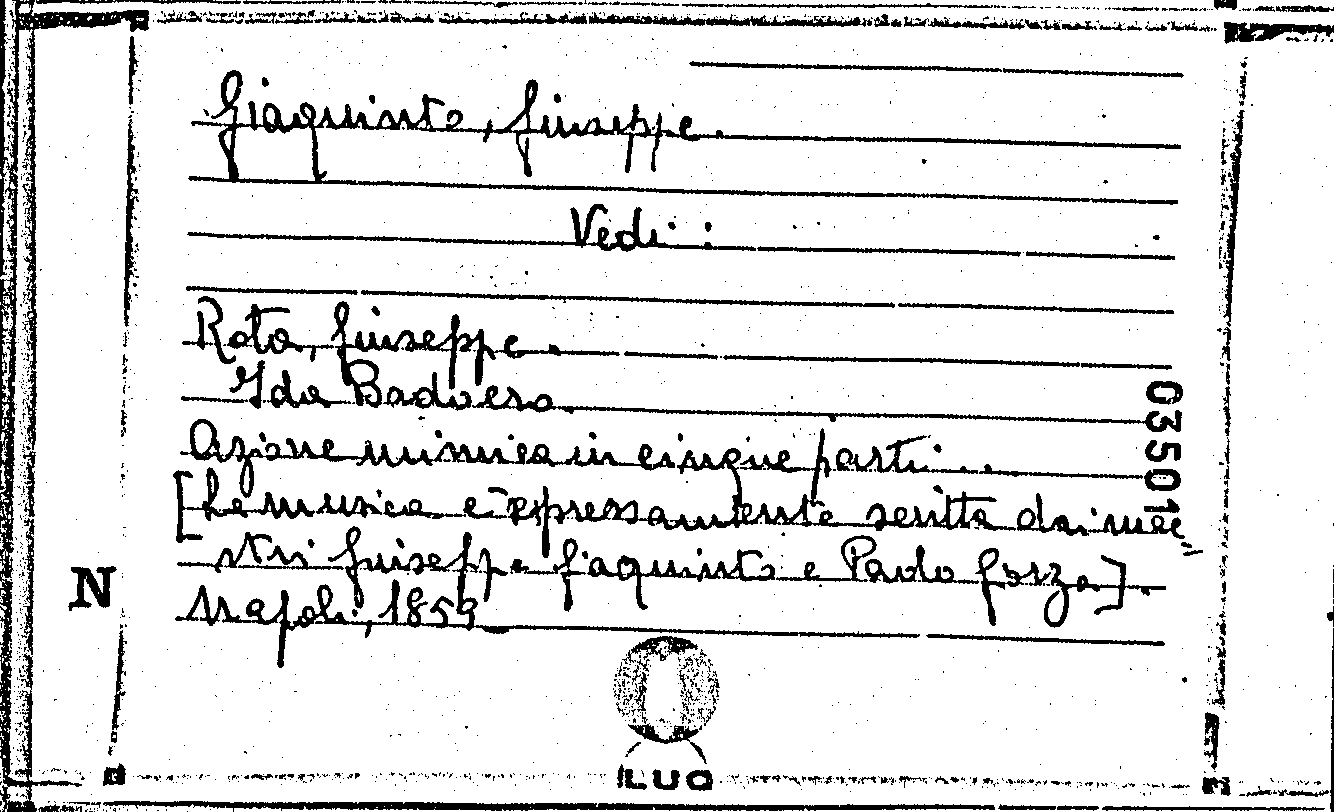 Giaquinto, Giuseppe.
Vedi:
Rota, Giuseppe.
Ida Badoero.
Azione mimica in cinque parti...
[La musica è espressamente scritta dai mae-
stri Giuseppe Giaquinto e Paolo Giorza].
Napoli, 1859
035501
N
ILUO